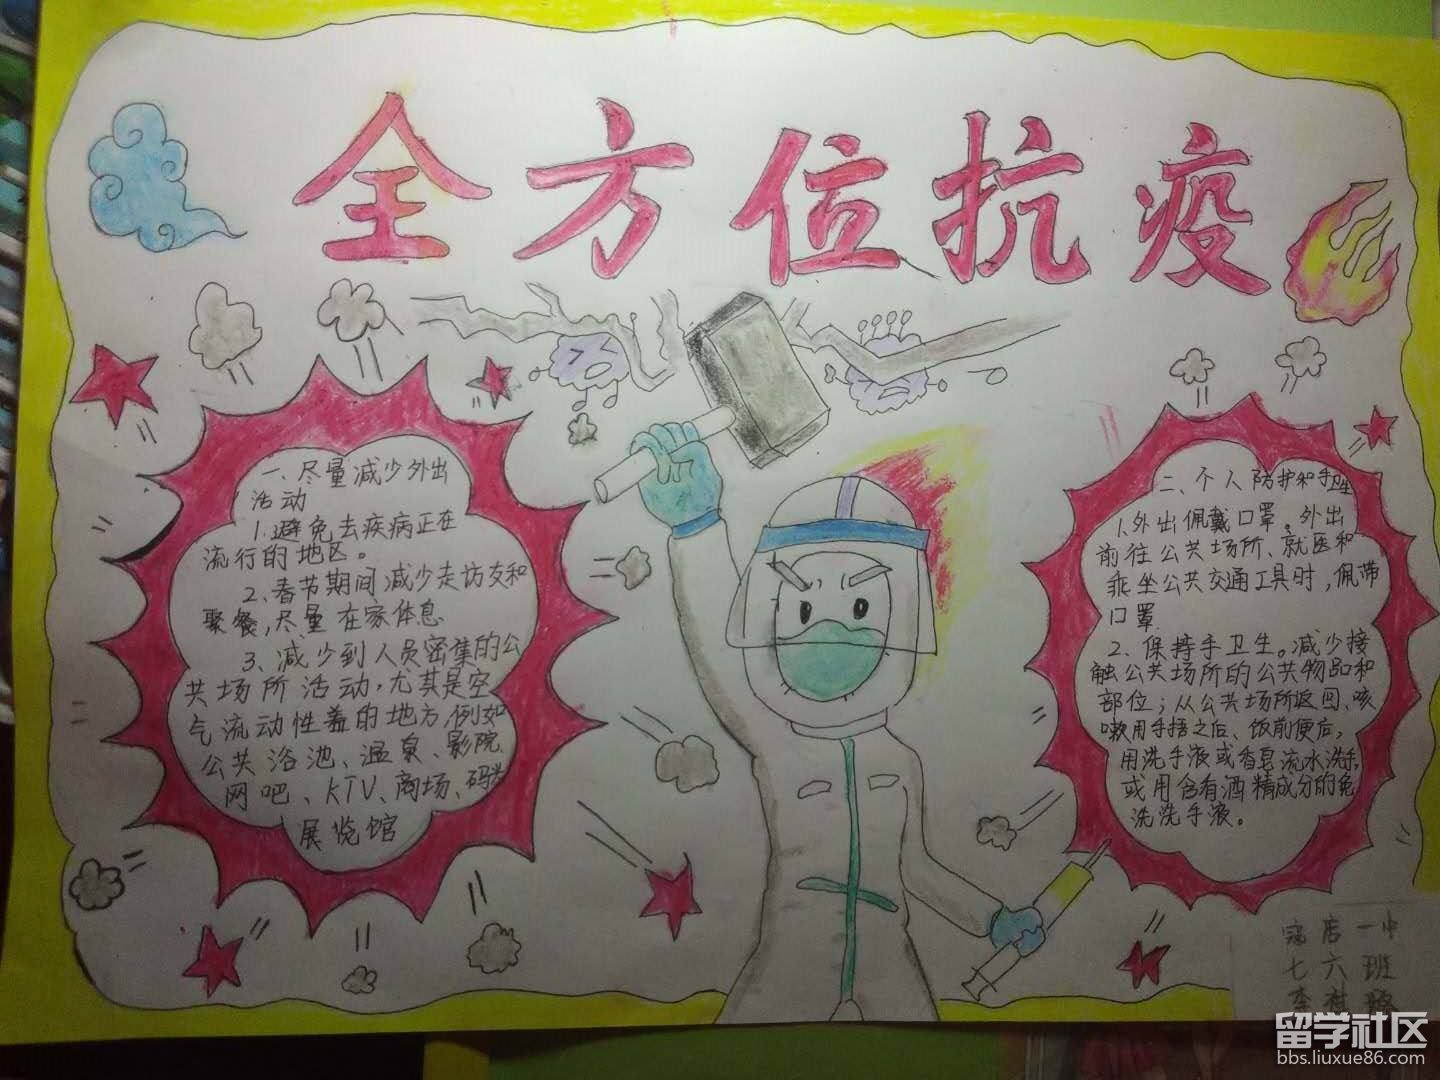 全方位抗疫
一、尽量减少外出
活动
1.避免去疾病正在
流行的地区。
2、春节期间减少走访友和
聚餐,尽量在家体息
3、减少到人员密集的公
共场所活动,尤其是空
气流动性羞的地方,例如
公共浴池、温泉、影院
网吧、KTV、商场、码头
展览馆
二、个人防护和手卫生
1.外出佩戴口罩。外出
前往公共场所、就医和
乘坐公共交通工具时,佩带
口罩
2、保持手卫生。减少接
触公共场所的公共物品和
部位;从公共场所返回、咳
嗽用手捂之后、饭前便后,
用洗手液或香皂流水洗手,
或用含有酒精成分的免
洗洗手液。
店一中
七六班
李
留学社区
bbs.liuxue86.com